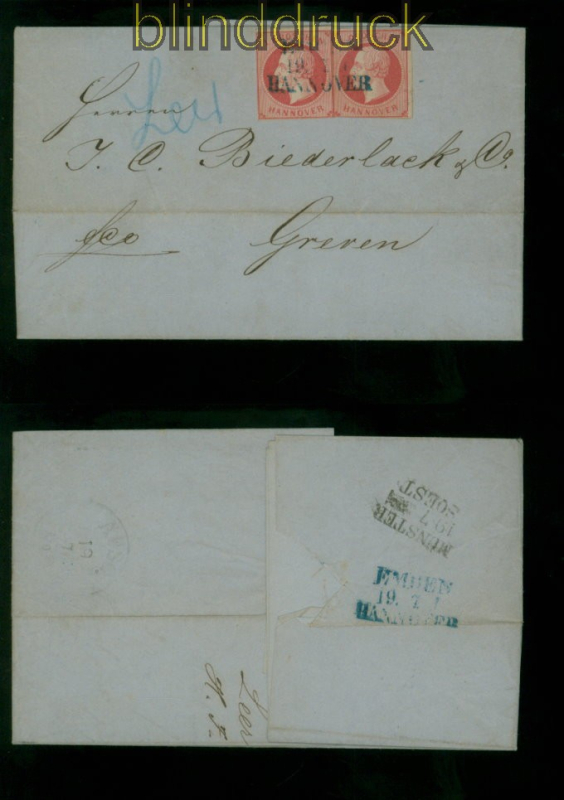 blinddruck
19. 7 1
HANNOVER
HANNOVER HANNOVER
Leer
Herren
J. C. Biederlack & Co.
fco Greven
MÜNSTER
19 7
SOEST
EMDEN
19. 7 1
HANNOVER
19
7
Leer